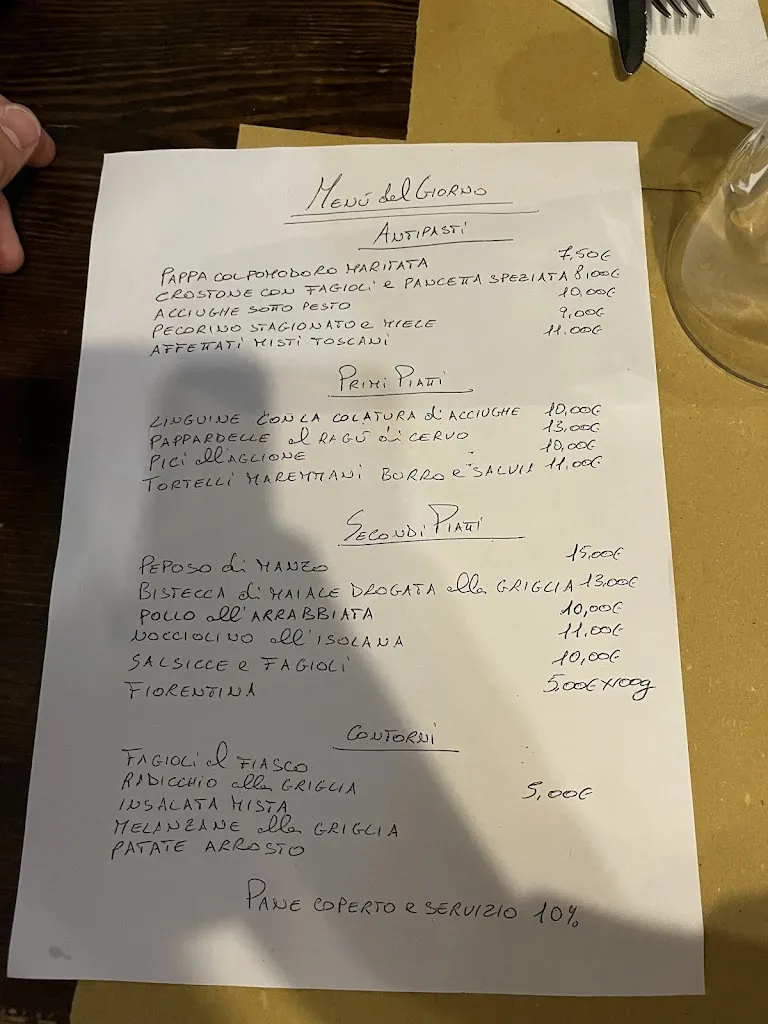 MENÚ del GIORNO
ANTIPASTI
PAPPA COL POMODORO MARITATA 7,50€
CROSTONE CON FAGIOLI e PANCETTA SPEZIATA 8,00€
ACCIUGHE SOTTO PESTO 10,00€
PECORINO STAGIONATO e MIELE 9,00€
AFFETTATI MISTI TOSCANI 11.00€
PRIMI PIATTI
LINGUINE CON LA COLATURA di ACCIUGHE 10,00€
PAPPARDELLE al RAGÚ di CERVO 13,00€
PICI all'AGLIONE 10,00€
TORTELLI MAREMMANI BURRO e SALVIA 11,00€
SECONDI PIATTI
PEPOSO di MANZO 15,00€
BISTECCA di MAIALE DROGATA alla GRIGLIA 13,00€
POLLO all'ARRABBIATA 10,00€
NOCCIOLINO all'ISOLANA 11.00€
SALSICCE e FAGIOLI 10,00€
FIORENTINA 5,00€ x 100g
CONTORNI
FAGIOLI al FIASCO
RADICCHIO alla GRIGLIA
INSALATA MISTA 5,00€
MELANZANE alla GRIGLIA
PATATE ARROSTO
PANE COPERTO e SERVIZIO 10%